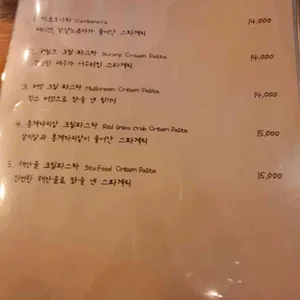 1. 까르보나라 Carbonara 14,000
베이컨, 달걀노른자가 들어간 스파게티
2. 쉬림프 크림 파스타 Shrimp Cream Pasta 14,000
새우가 어우러진 스파게티
3. 버섯 크림 파스타 Mushroom Cream Pasta 14,000
버섯으로 맛을 낸
4. 홍게다리살 크림파스타 Red snow crab Cream Pasta 15,000
홍게다리살이 들어간 스파게티
5. 해산물 크림파스타 Seafood Cream Pasta 15,000
해산물로 맛을 낸 스파게티